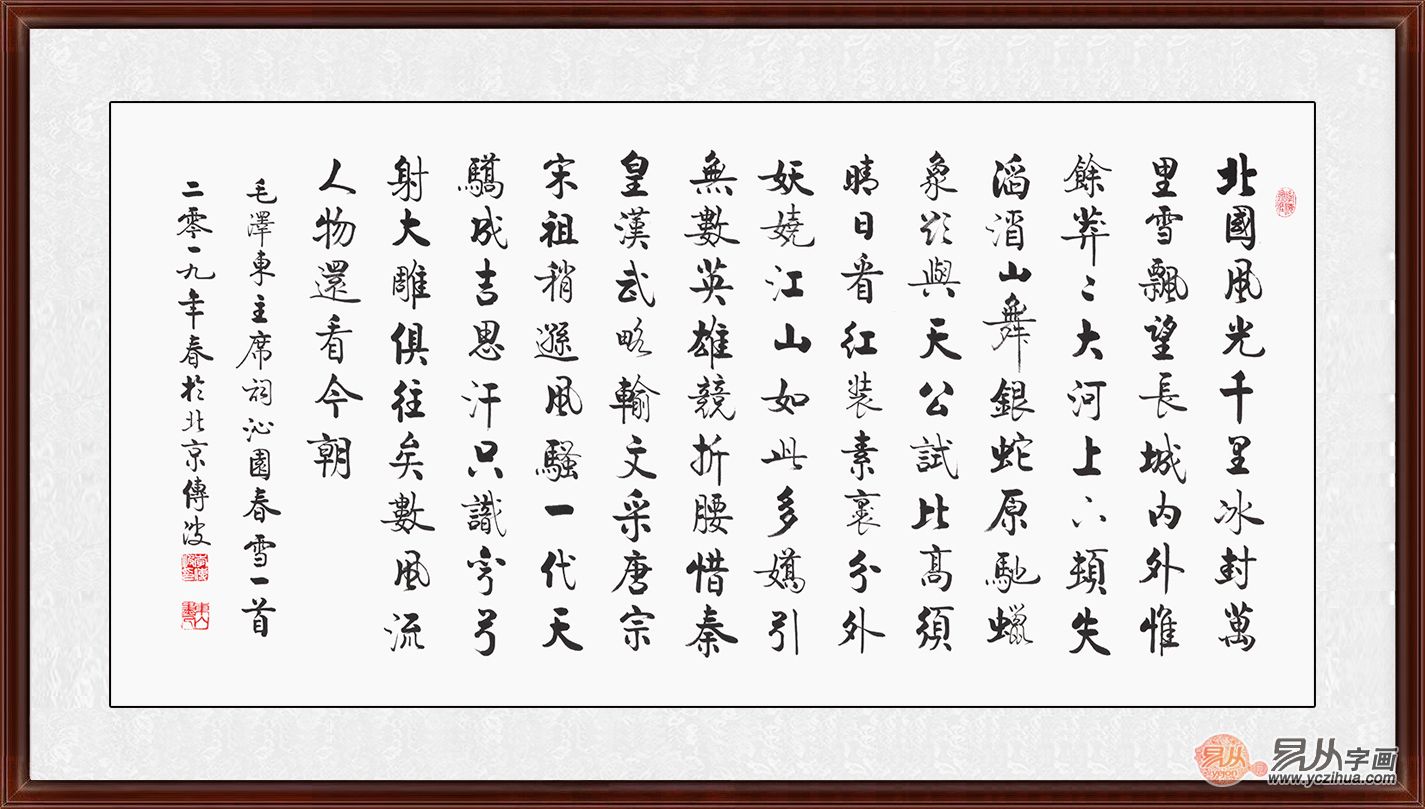 北國風光千里冰封萬
里雪飄望長城内外惟
餘莽〻大河上下頓失
滔滔山舞銀蛇原馳蠟
象欲與天公試比高須
晴日看紅裝素裹分外
妖嬈江山如此多嬌引
無數英雄競折腰惜秦
皇漢武略輸文采唐宗
宋祖稍遜風騷一代天
驕成吉思汗只識彎弓
射大雕俱往矣數風流
人物還看今朝
毛澤東主席詞沁園春雪一首
二零一九年春於北京傳波
易从
易从字画
www.yczihua.com